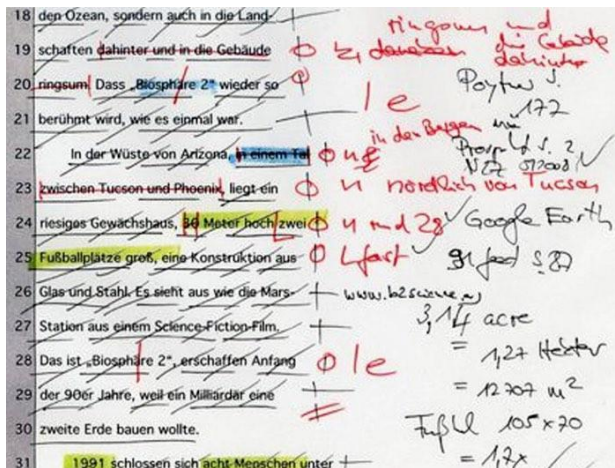 18 den Ozean, sondern auch in die Land-
19 schaften dahinter und in die Gebäude
20 ringsum. Dass „Biosphäre 2“ wieder so
21 berühmt wird, wie es einmal war.
22 In der Wüste von Arizona, in einem Tal
23 zwischen Tucson und Phoenix, liegt ein
24 riesiges Gewächshaus, 30 Meter hoch, zwei
25 Fußballplätze groß, eine Konstruktion aus
26 Glas und Stahl. Es sieht aus wie die Mars-
27 Station aus einem Science-Fiction-Film.
28 Das ist „Biosphäre 2“, erschaffen Anfang
29 der 90er Jahre, weil ein Milliardär eine
30 zweite Erde bauen wollte.
31 1991 schlossen sich acht Menschen unter
ringsum und
die Gebäude
dahinter
S.
177
le
in den Bergen
nördlich von Tucson
und 28
Google Earth
fast
91 feet S. 87
3,14 acre
= 1,27 Hektar
= 12707 m²
le
105 x 70
= 1,7x